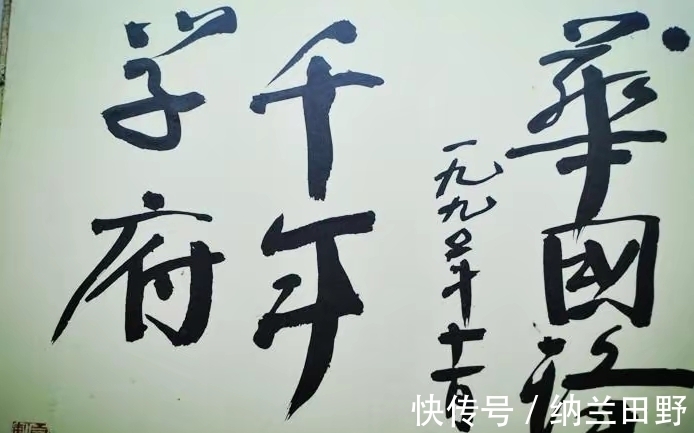 華國
一九九五年十一月
千年
学府
快传号 / 纳兰田野